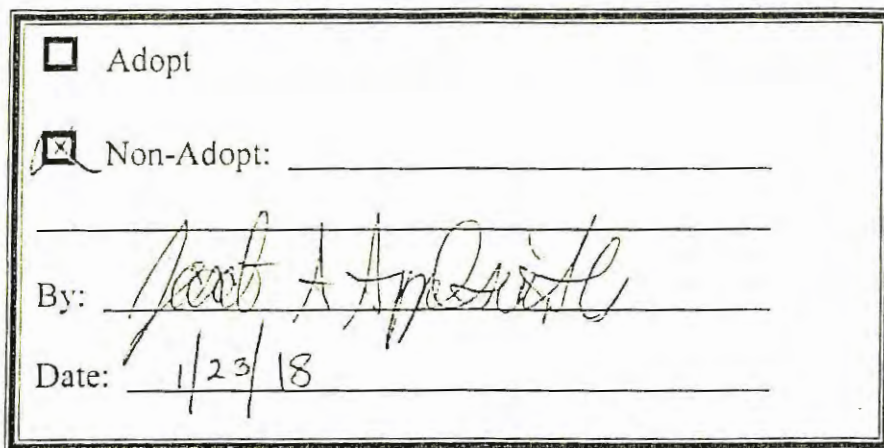 ☐ Adopt
☒ Non-Adopt:
By: Jacob A Applesmith
Date: 1/23/18